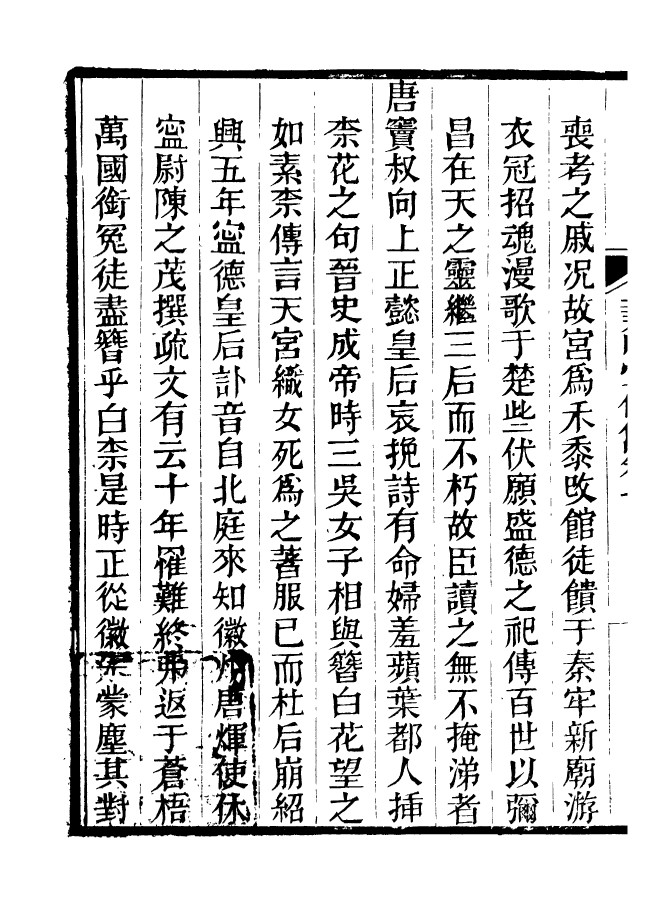 喪考之戚况故宮爲禾黍改館徒饋于秦牢新廟游
衣冠招魂漫歌于楚些伏願盛德之祀傳百世以彌
昌在天之靈繼三后而不朽故臣讀之無不掩涕者
唐竇叔向上正懿皇后哀挽詩有命婦羞蘋葉都人插
柰花之句晉史成帝時三吳女子相與簪白花望之
如素柰傳言天宮織女死爲之著服已而杜后崩紹
興五年寍德皇后訃音自北庭來知徽州唐煇使休
寍尉陳之茂撰疏文有云十年罹難終弗返于蒼梧
萬國銜冤徒盡簪乎白柰是時正從徽宗蒙塵其對